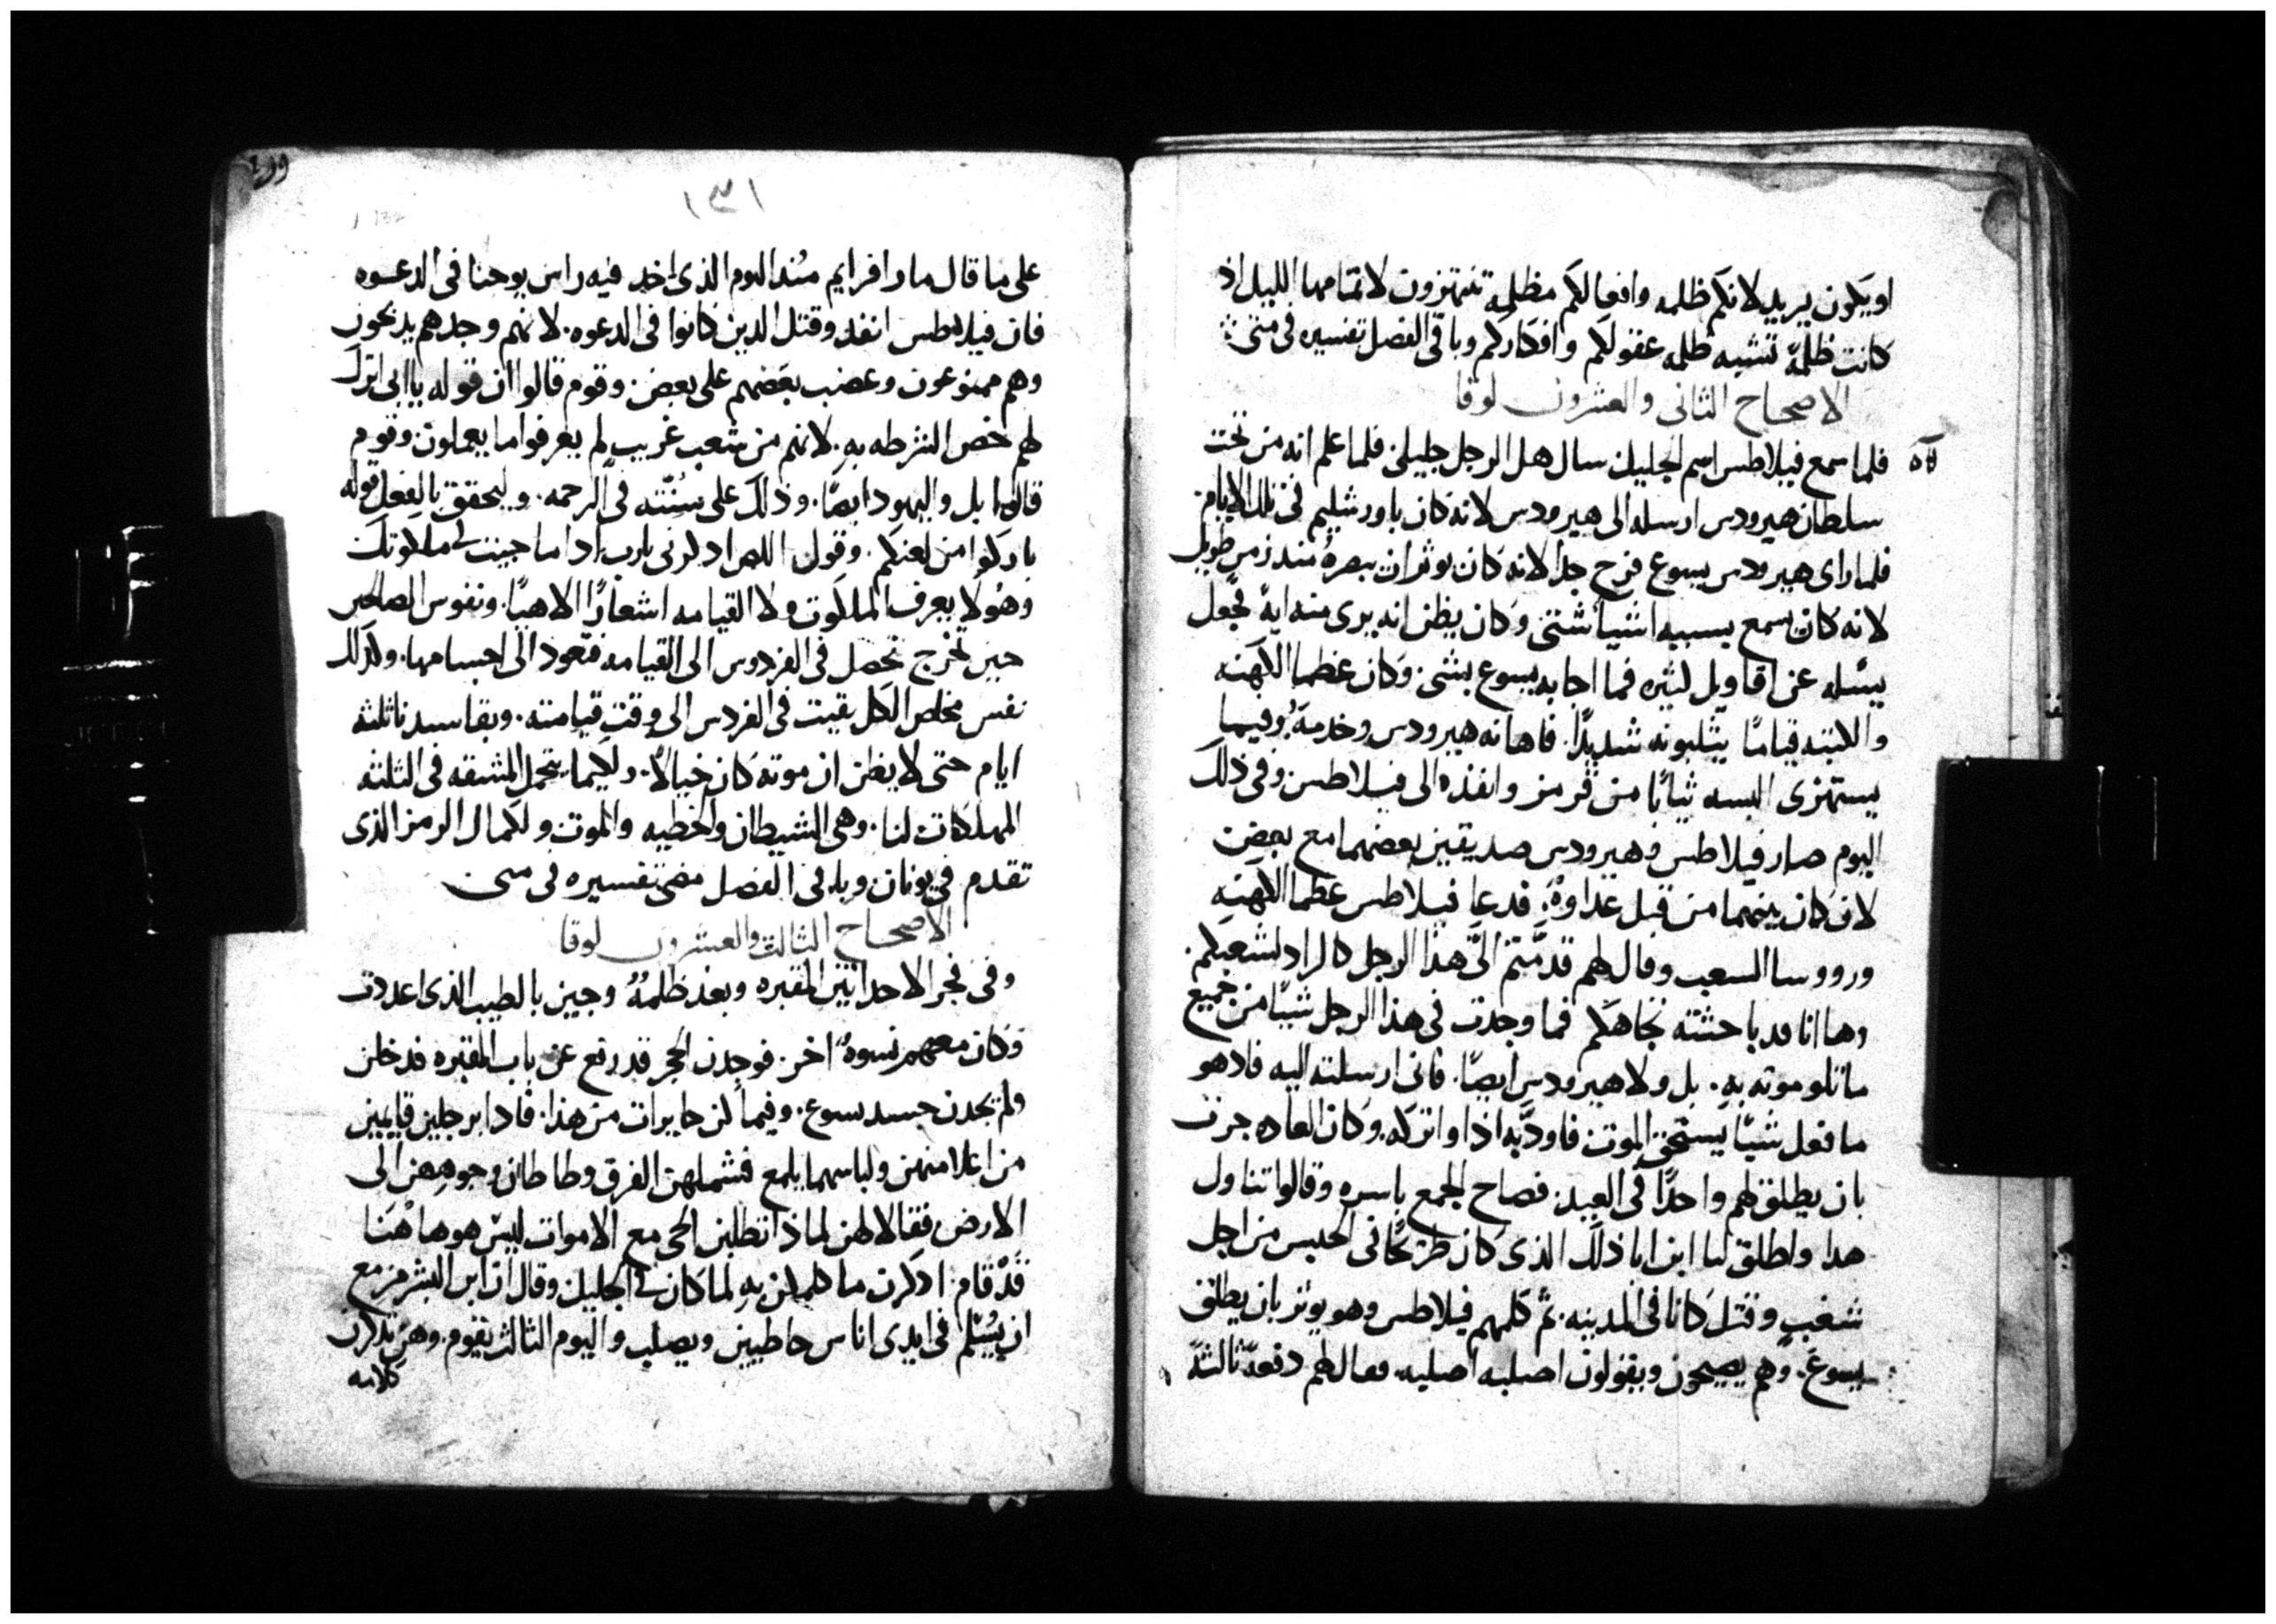 او يكون يريد لانكم ظلمه وافعالكم مظلمه تنتهزون لاتمامها الليل اذ
كانت ظلمة تشبه ظلمه عقولكم وافكاركم وباقى الفصل تفسيره فى متى
الاصحاح الثانى والعشرون لوقا
فلما سمع فيلاطس اسم الجليل سال هل الرجل جليلى. فلما علم انه من تحت
سلطان هيرودس ارسله الى هيرودس لانه كان باورشليم فى تلك الايام
فلما راى هيرودس يسوع فرح جدا لانه كان يوثر ان يبصره منذ زمن طويل
لانه كان يسمع بسببه اشيا شتى وكان يظن انه يرى منه اية فجعل
يسله عن اقاويل كثيره فما اجابه يسوع بشى. وكان عظما الكهنه
والكتبه قياما يثلبونه شديدا. فاهانه هيرودس وخدمه وفيما
يستهزى البسه ثيابا من قرمز وانفذه الى فيلاطس وفى ذلك
اليوم صار فيلاطس وهيرودس صديقين بعضهما مع بعض
لان كان بينهما من قبل عداوة. فدعا فيلاطس عظما الكهنه
ورووسا السعب وقال لهم قدمتم الى هذا الرجل كالراد لشعبكم.
وها انا قد باحثته تجاهكم فما وجدت فى هذا الرجل شيا من جميع
ما تلوموته به. بل ولا هيرودس ايضا. فانى ارسلته اليه فاذ هو
ما فعل شيا يستحق الموت فاودبه اذا واتركه. وكان العاده جرت
بان يطلق لهم واحدا فى العيد. فصاح الجمع باسره وقالوا تناول
هدا واطلق لنا ابن ابا ذلك الذى كان طرحا فى الحبس من اجل
شغب وقتل كانا فى المدينه. ثم كلمهم فيلاطس وهو يوثر بان يطلق
يسوع. وهم يصيحون ويقولون اصلبه اصلبه فقال لهم دفعة ثالثة
١٣١
132
على ما قال مار افرايم منذ اليوم الذى اخد فيه راس يوحنا فى الدعوه
فان فيلاطس انفد وقتل الدين كانوا فى الدعوه. لانهم وجدهم يدبحون
وهم ممنوعون وعضب بعضهم على بعض. وقوم قالوا ان قوله ياابى اترك
لهم خص الشرطه به. لانهم من شعب غريب لم يعرفوا ما يعملون وقوم
قالوا بل واليهود ايضا. وذلك على سنته فى الرحمه. وليحقق بالفعل قوله
باركوا من لعنكم. وقول اللص ادكرنى يارب اذا ما جيت فى ملكوتك
وهولا يعرف الملكوت ولا القيامه اشعارا الاهيا. ونفوس الصالحين
حين تخرج تحصل فى الفردوس الى القيامه فتعود الى اجسامها. وكدلك
نفس مخلص الكل بقيت فى الفردس الى وقت قيامته. وبقا سيدنا ثلثه
ايام حتى لا يظن ان موته كان خيالا. ولكيما يتحمل المشقه فى الثلثه
المهلكات لنا. وهى الشيطان والخطيه والموت ولكمال الرمز الذى
تقدم فى يونان وباقى الفصل مضى تفسيره فى متى
الاصحاح الثالث والعشرون لوقا
وفى فجر الاحد اتين المقبره وبعد ظلمة وجين بالطيب الذى اعددت
وكان معهم نسوة اخر. فوجدن الحجر قد رفع عن باب المقبره فدخلن
ولم يجدن جسد يسوع. وفيما كن حايرات من هذا. فادا برجلين قايمين
من اعلا منهن ولباسهما يلمع فشملهن الفرق وطاطان وجوههن الى
الارض فقالا لهن لماذا تطلبن الحى مع الاموات ليس هو هاهنا
قد قام. ادكرن ما كلمكن به لما كان فى الجليل وقال ان ابن البشر مزمع
ان يسلم فى ايدى اناس خاطيين ويصلب واليوم الثالث يقوم. وهن تدكرن
كلامه